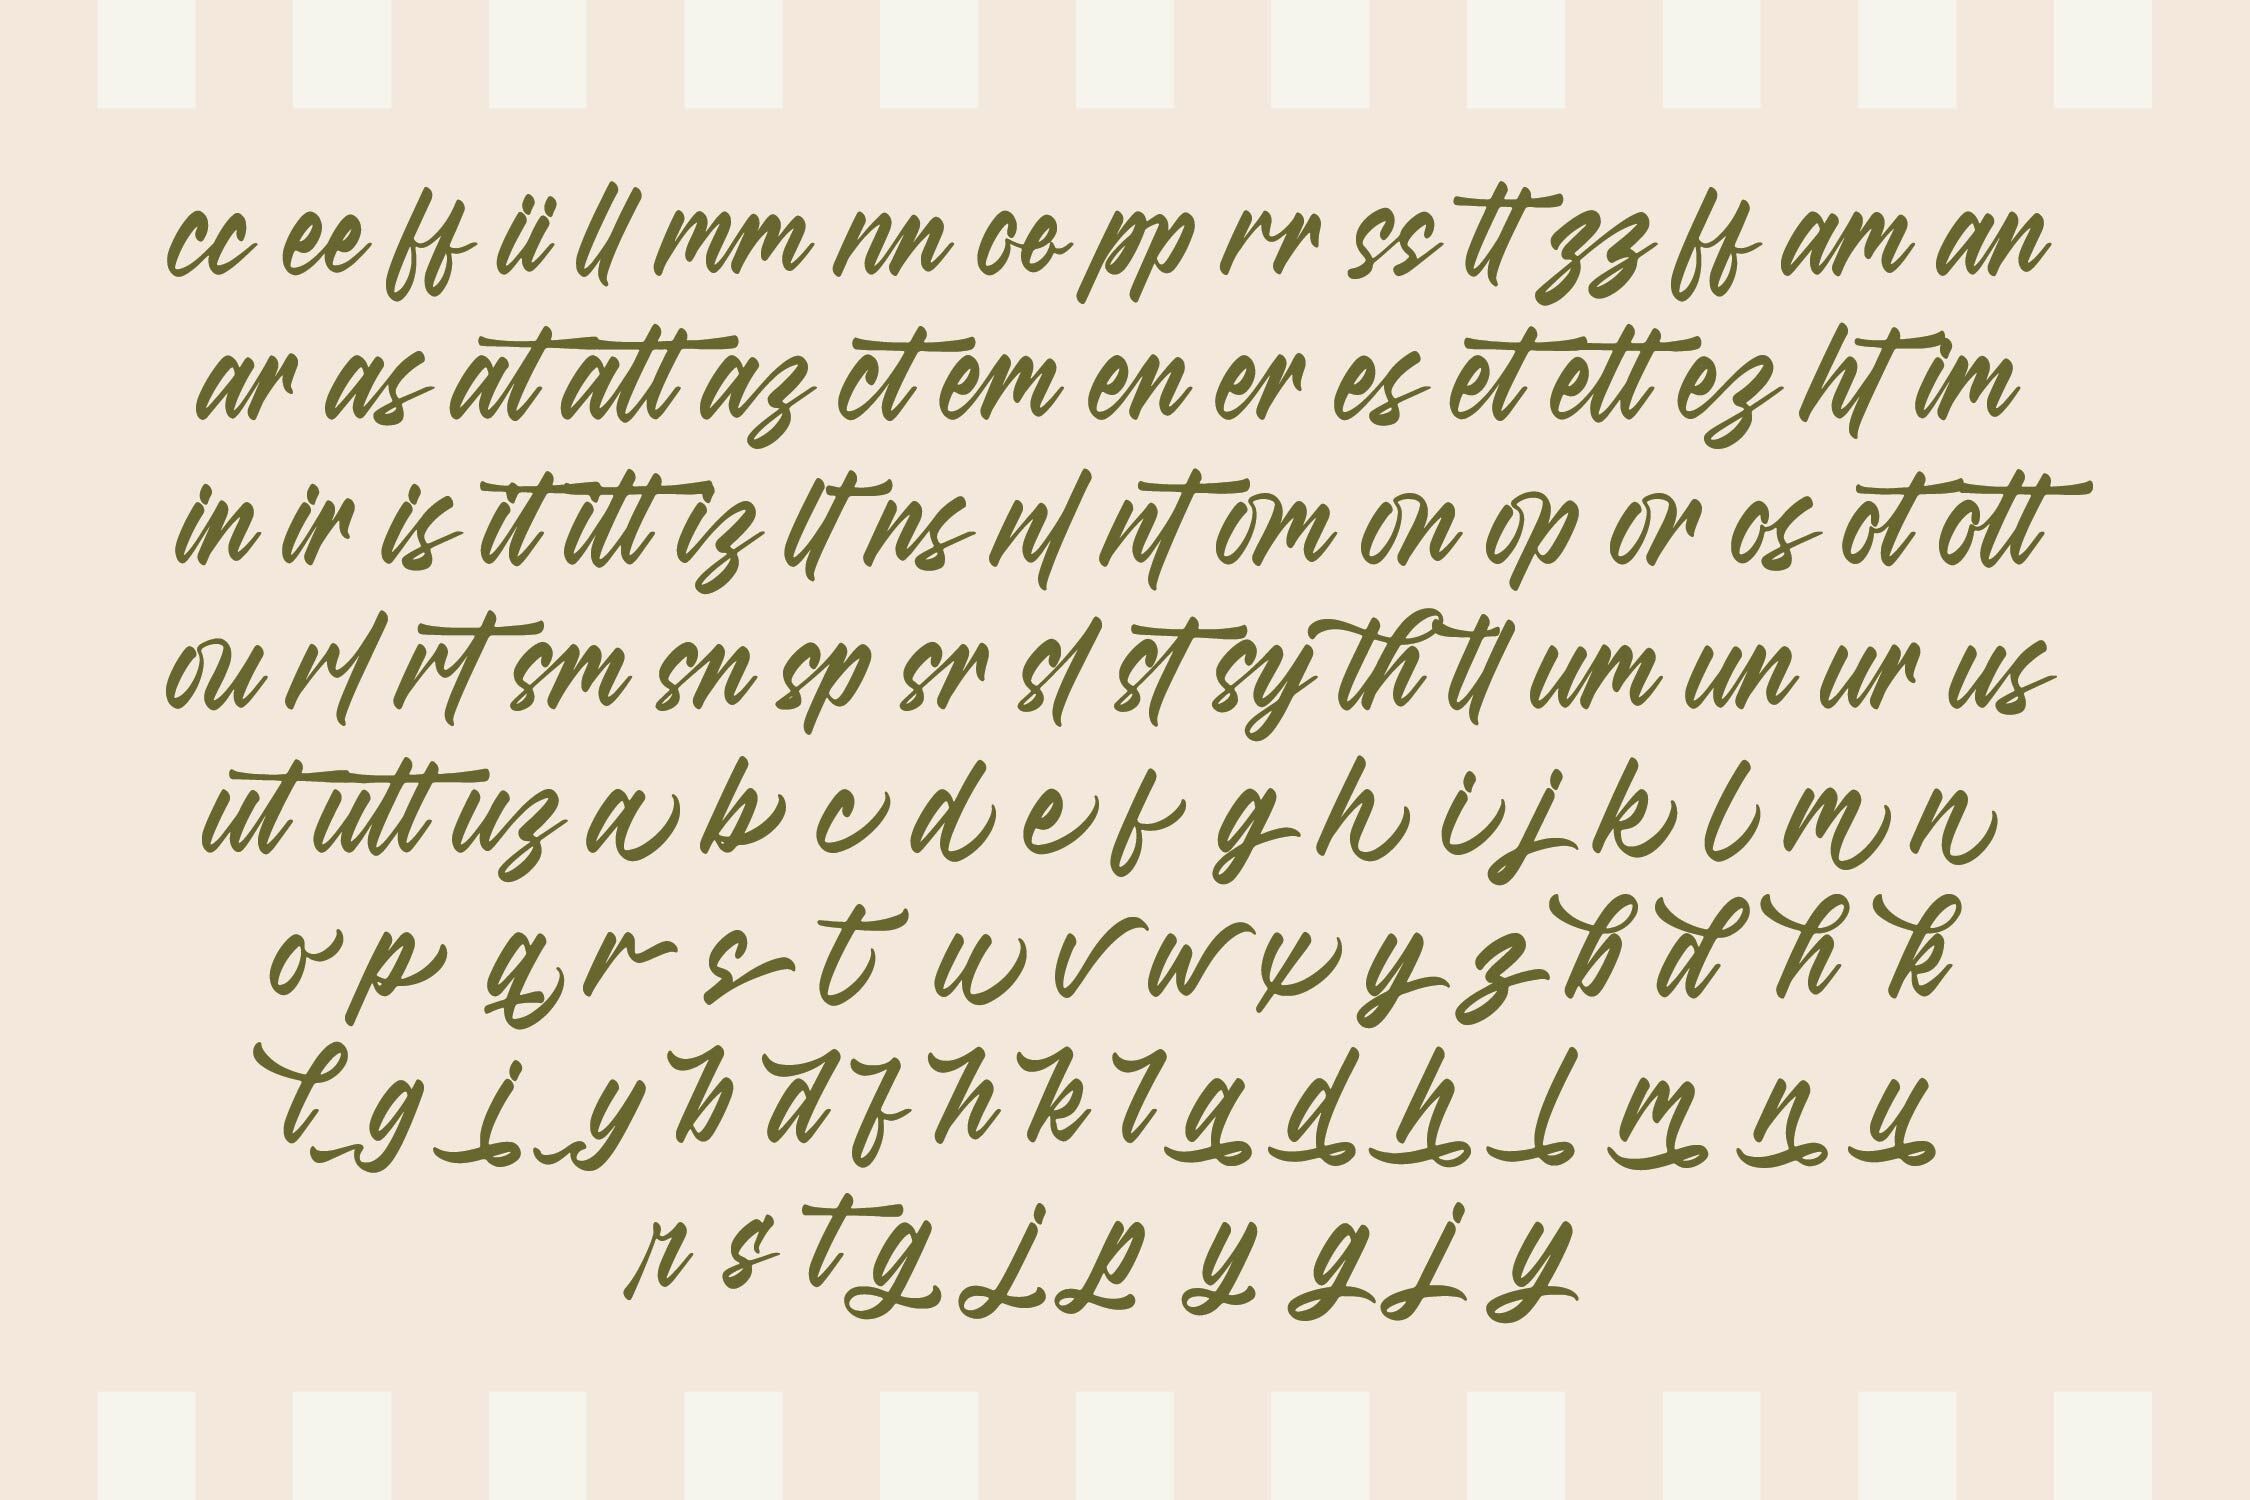 cc ee ff ii ll mm nn oo pp rr ss tt zz ff am an
ar as at att az ct em en er es et ett ez ht im
in ir is it itt iz lt ns nl nt om on op or os ot ott
ou rl rt sm sn sp sr sl st sy th tl um un ur us
ut utt uz a b c d e f g h i j k l m n
o p q r s t u v w x y z b d h k
l g j y b d f h k l a d h l m n u
r s t g j p y g j y